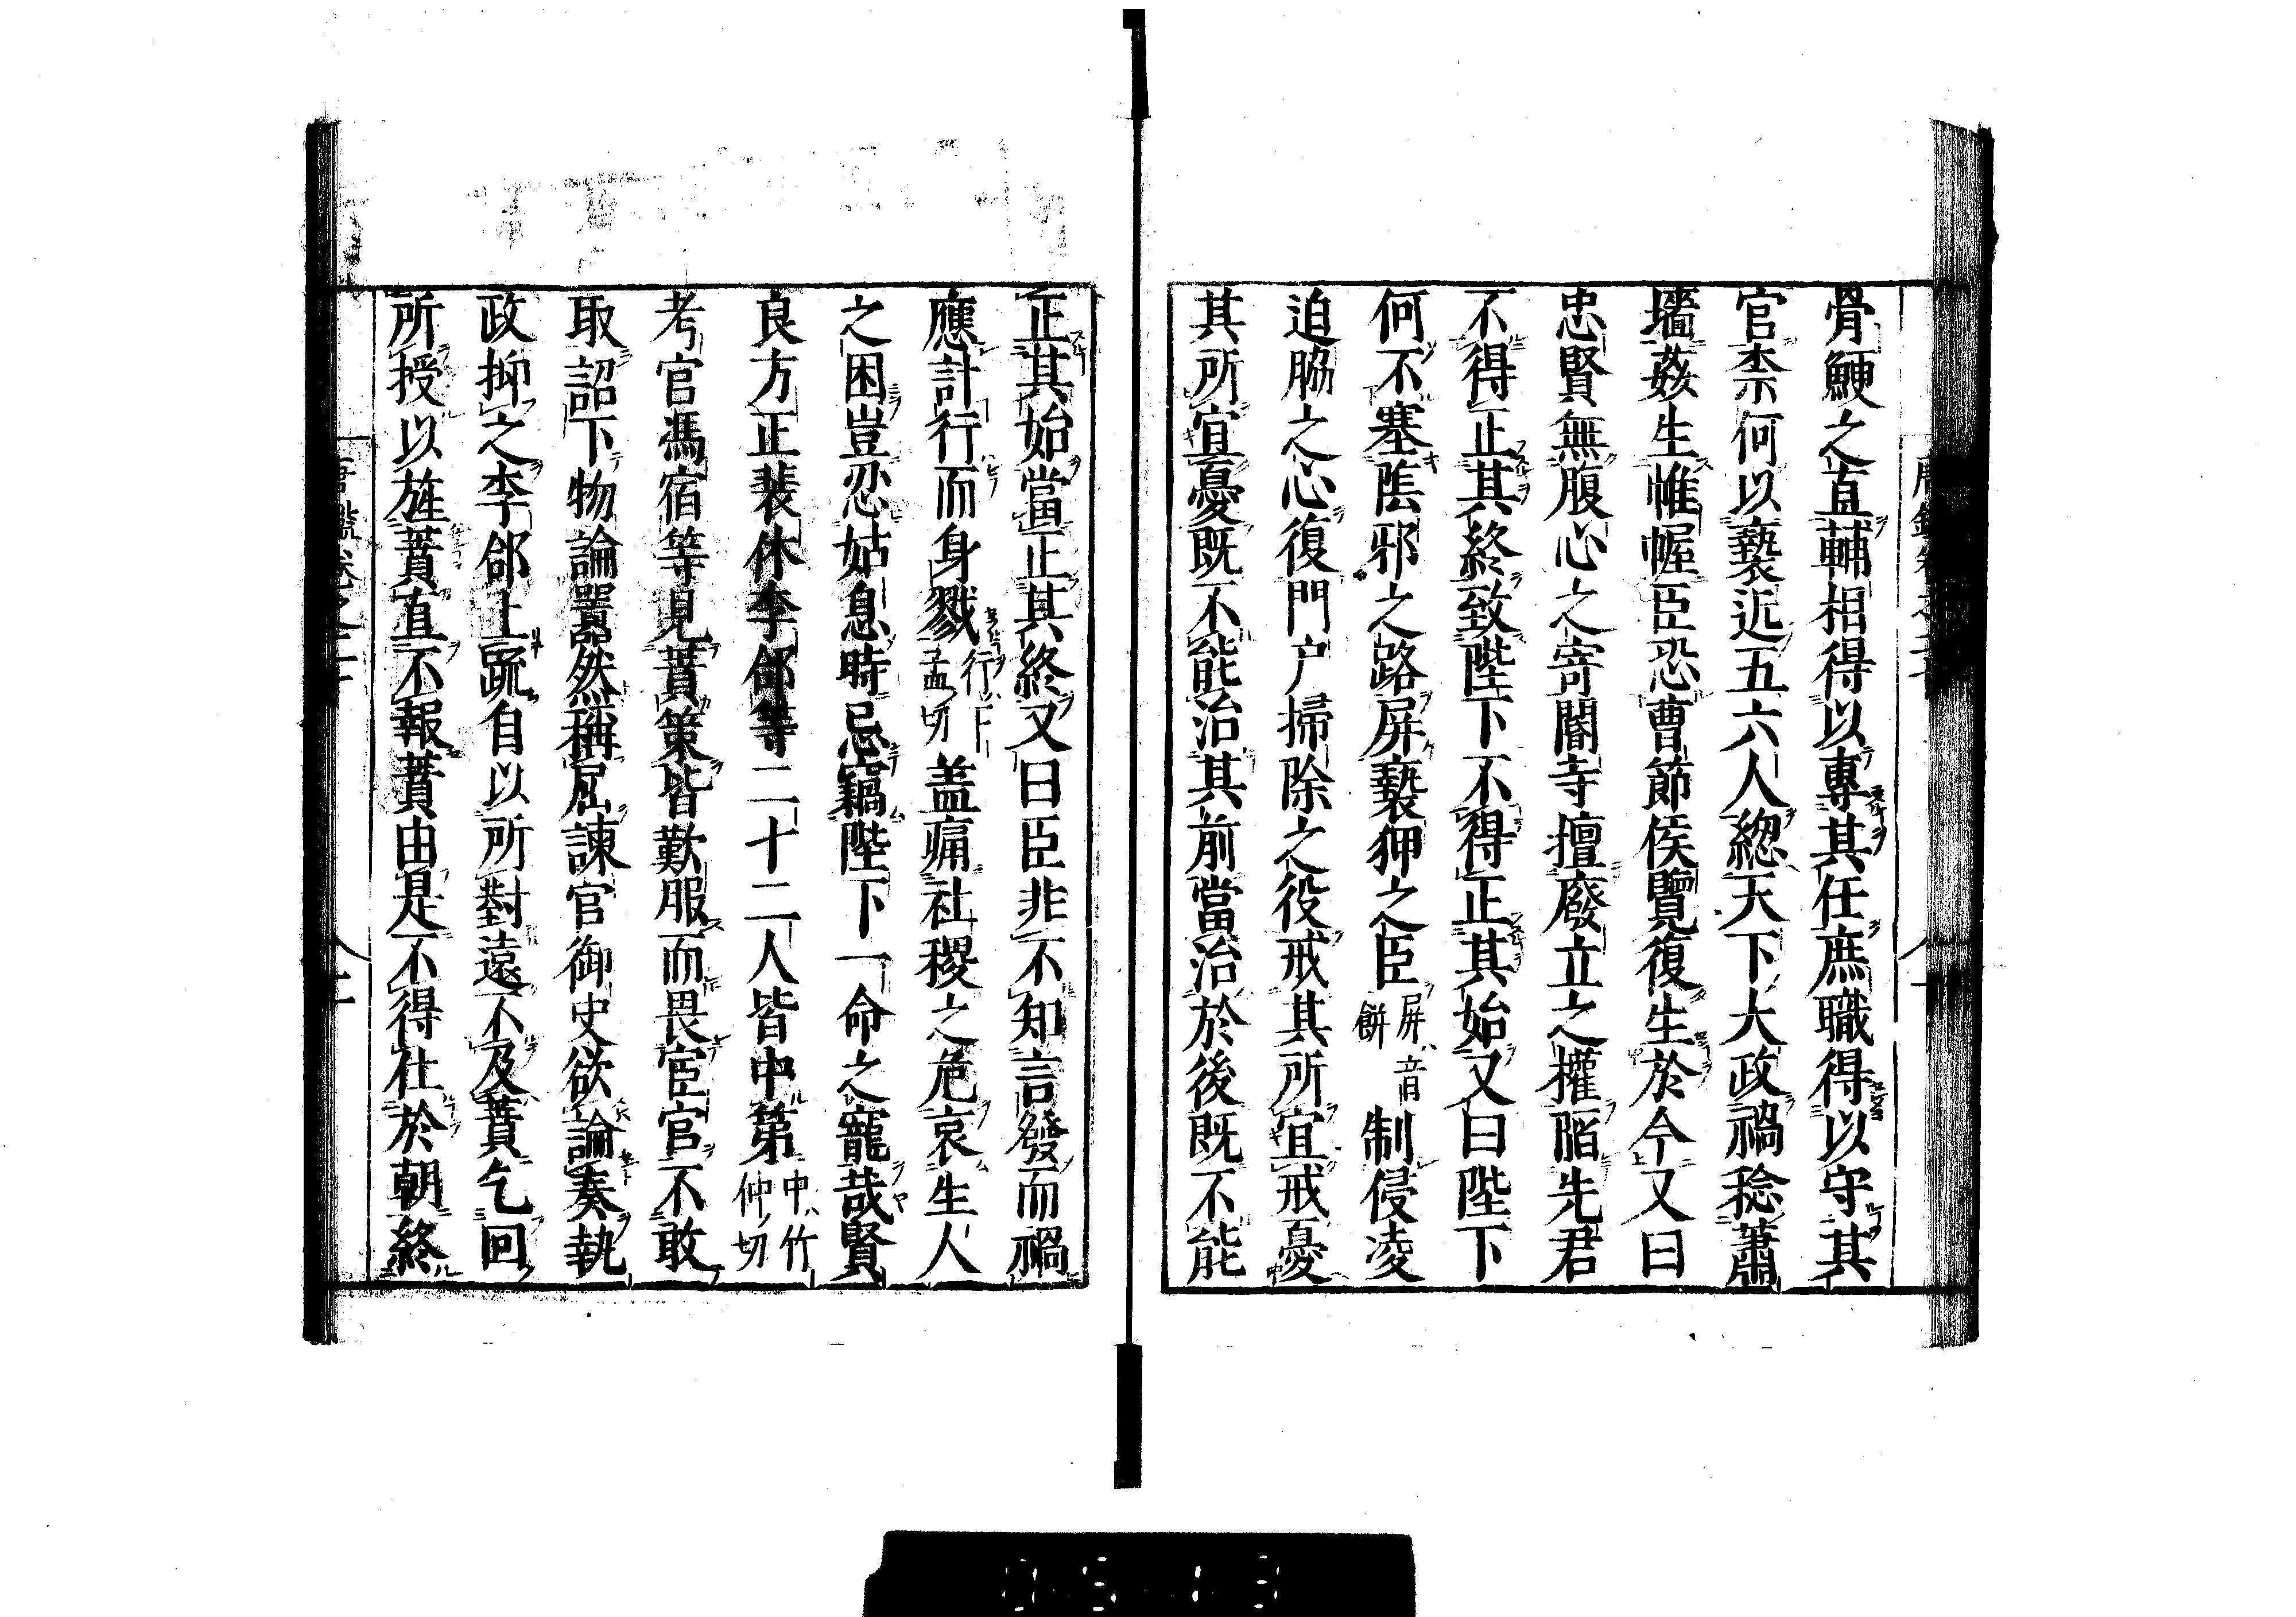 骨鯁之直輔相得以專其任庶職得以守其
官柰何以褻近五六人緫天下大政禍稔蕭
墻姦生帷幄臣恐曹節侯覽復生於今又曰
忠賢無腹心之寄閽寺擅廢立之權陷先君
不得正其終致陛下不得正其始又曰陛下
何不塞陰邪之路屏褻狎之臣屏音餅制侵凌
迫脇之心復門户掃除之役戒其所宜戒憂
其所宜憂既不能治其前當治於後既不能
正其始當正其終又曰臣非不知言發而禍
應計行而身戮行下孟切盖痛社稷之危哀生人
之困豈忍姑息時忌竊陛下一命之寵哉賢
良方正裴休李郃等二十二人皆中第中竹仲切
考官馮宿等見蕡策皆歎服而畏宦官不敢
取詔下物論嚣然稱屈諫官御史欲論奏執
政抑之李郃上䟽自以所對遠不及蕡乞回
所授以旌蕡直不報蕡由是不得仕於朝終